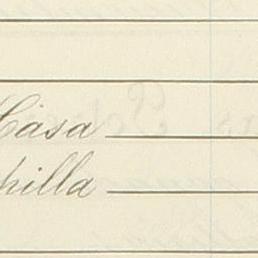 Casa
hilla